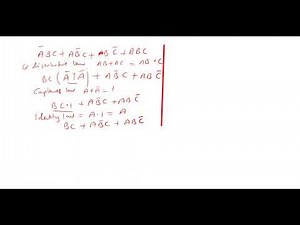 A̅BC + AB̅C + ABC̅ + ABC
distributive law AB+AC = AB+C
BC(A̅+A) + AB̅C + ABC̅
law A+A̅ = 1
BC·1 + AB̅C + ABC̅
Identity law = A·1 = A
BC + AB̅C + ABC̅